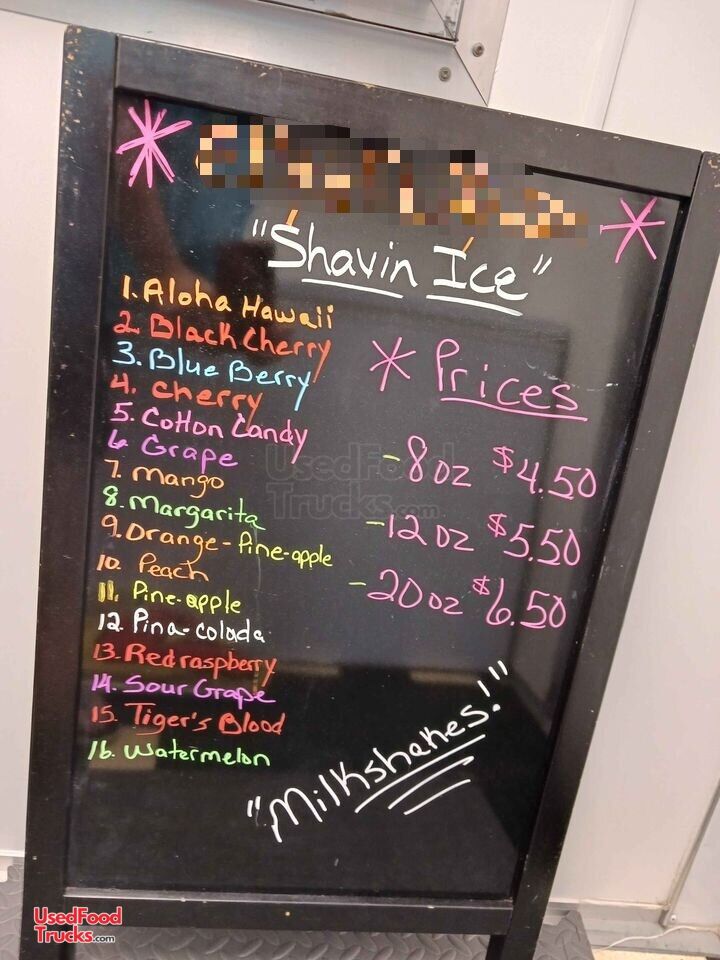 "Shavin Ice"
1. Aloha Hawaii
2. Black Cherry
3. Blue Berry
4. cherry
5. Cotton Candy
6. Grape
7. Mango
8. Margarita
9. Orange-Pine-apple
10. Peach
11. Pine-apple
12. Pina-colada
13. Red raspberry
14. Sour Grape
15. Tiger's Blood
16. Watermelon
* Prices
-8 oz $4.50
-12 oz $5.50
-20 oz $6.50
"Milkshakes!"
UsedFood
Trucks.com
UsedFood
Trucks.com